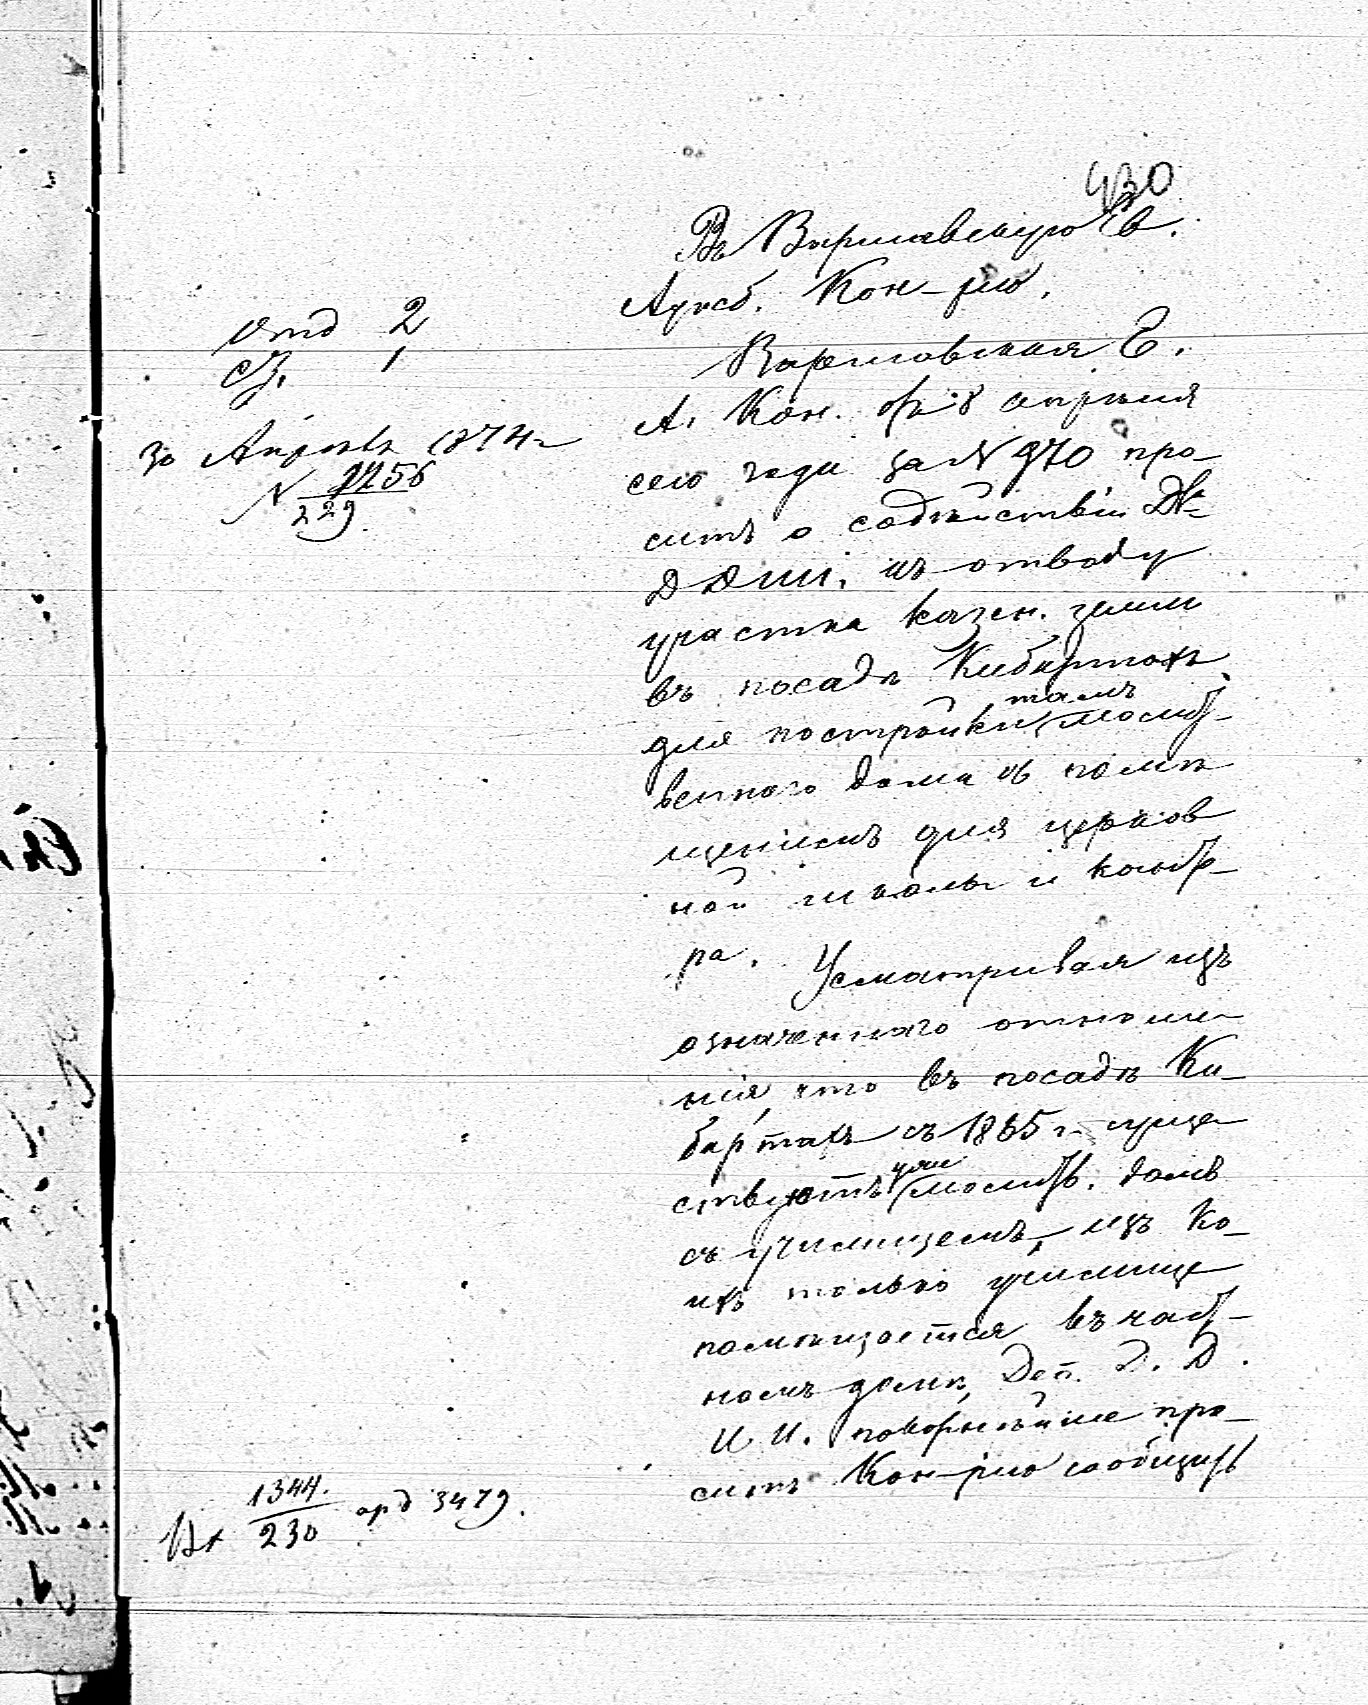 430
Въ Варшавскую Ев.
Аугсб. Кон-рію.
отд 2
ст. 1
30 Апрѣля 1874 г
№ 1256
229
Варшавская Е.
А. Кон. отъ 8 апрѣля
сего года за № 970 про-
ситъ о содѣйствіи Д-
Д Д И И. къ отводу
участка казен. земли
въ посадѣ Кибартахъ
для постройки тамъ молит-
веннаго дома съ помѣ
щеніемъ для церков
ной школы иканто-
ра. Усматривая изъ
означеннаго отноше-
нія, что въ посадѣ Ки-
бартахъ съ 1865 г. суще
ствуютъ уже молитв. домъ
съ училищемъ, изъ ко-
ихъ только училище
помѣщается въ част-
номъ домѣ, Деп. Д. Д.
И И. покорнѣйше про-
ситъ Кон-рію сообщить
Вх 1344.
230 орд 3479.